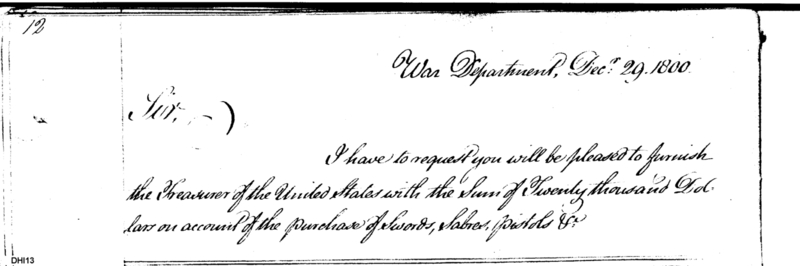 12
War Department, Decr. 29. 1800.
Sir,
I have to request you will be pleased to furnish
the Treasurer of the United States with the Sum of Twenty thousand Dol-
lars on account of the purchase of Swords, Sabres, pistols &c.
DHI13